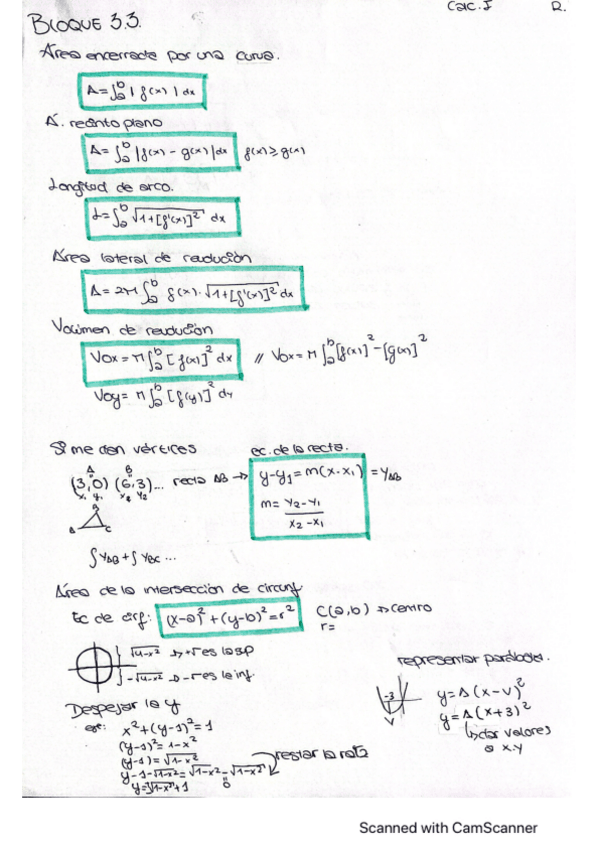 Calc. I R.
BLOQUE 3.3.
Área encerrada por una curva.
A=∫ₐᵇ | f(x) | dx
A. recinto plano
A=∫ₐᵇ |f(x) - g(x)| dx f(x) ≥ g(x)
Longitud de arco.
L=∫ₐᵇ √1+[f'(x)]² dx
Área lateral de revolución
A = 2π ∫ₐᵇ f(x)·√1+[f'(x)]² dx
Volumen de revolución
Vox = π∫ₐᵇ [f(x)]² dx // Vox = π ∫ₐᵇ [f(x)]² - [g(x)]²
Voy = π ∫ₐᵇ [f(y)]² dy
Si me dan vértices ec. de la recta.
A B
(3,0) (6,3)... recta AB → y-y₁ = m(x-x₁) = yAB
x₁ y₁ x₂ y₂
m = y₂-y₁
x₂-x₁
B
A C
∫yAB + ∫yBC ...
Área de la intersección de circunf.
Ec de circf: (x-a)² + (y-b)² = r² C(a,b) → centro
r=
√4-x² → +√ es la sp
-√4-x² → -√ es la inf
representar parábolas.
-3
V
y = A (x-v)²
y = A (x+3)²
↳ dar valores
a x.y
Despejar la y
ej: x² + (y-1)² = 1
(y-1)² = 1-x²
(y-1) = √1-x²
restar la raíz
y-1-√1-x² = √1-x² - √1-x²
0
y = √1-x² + 1
Scanned with CamScanner